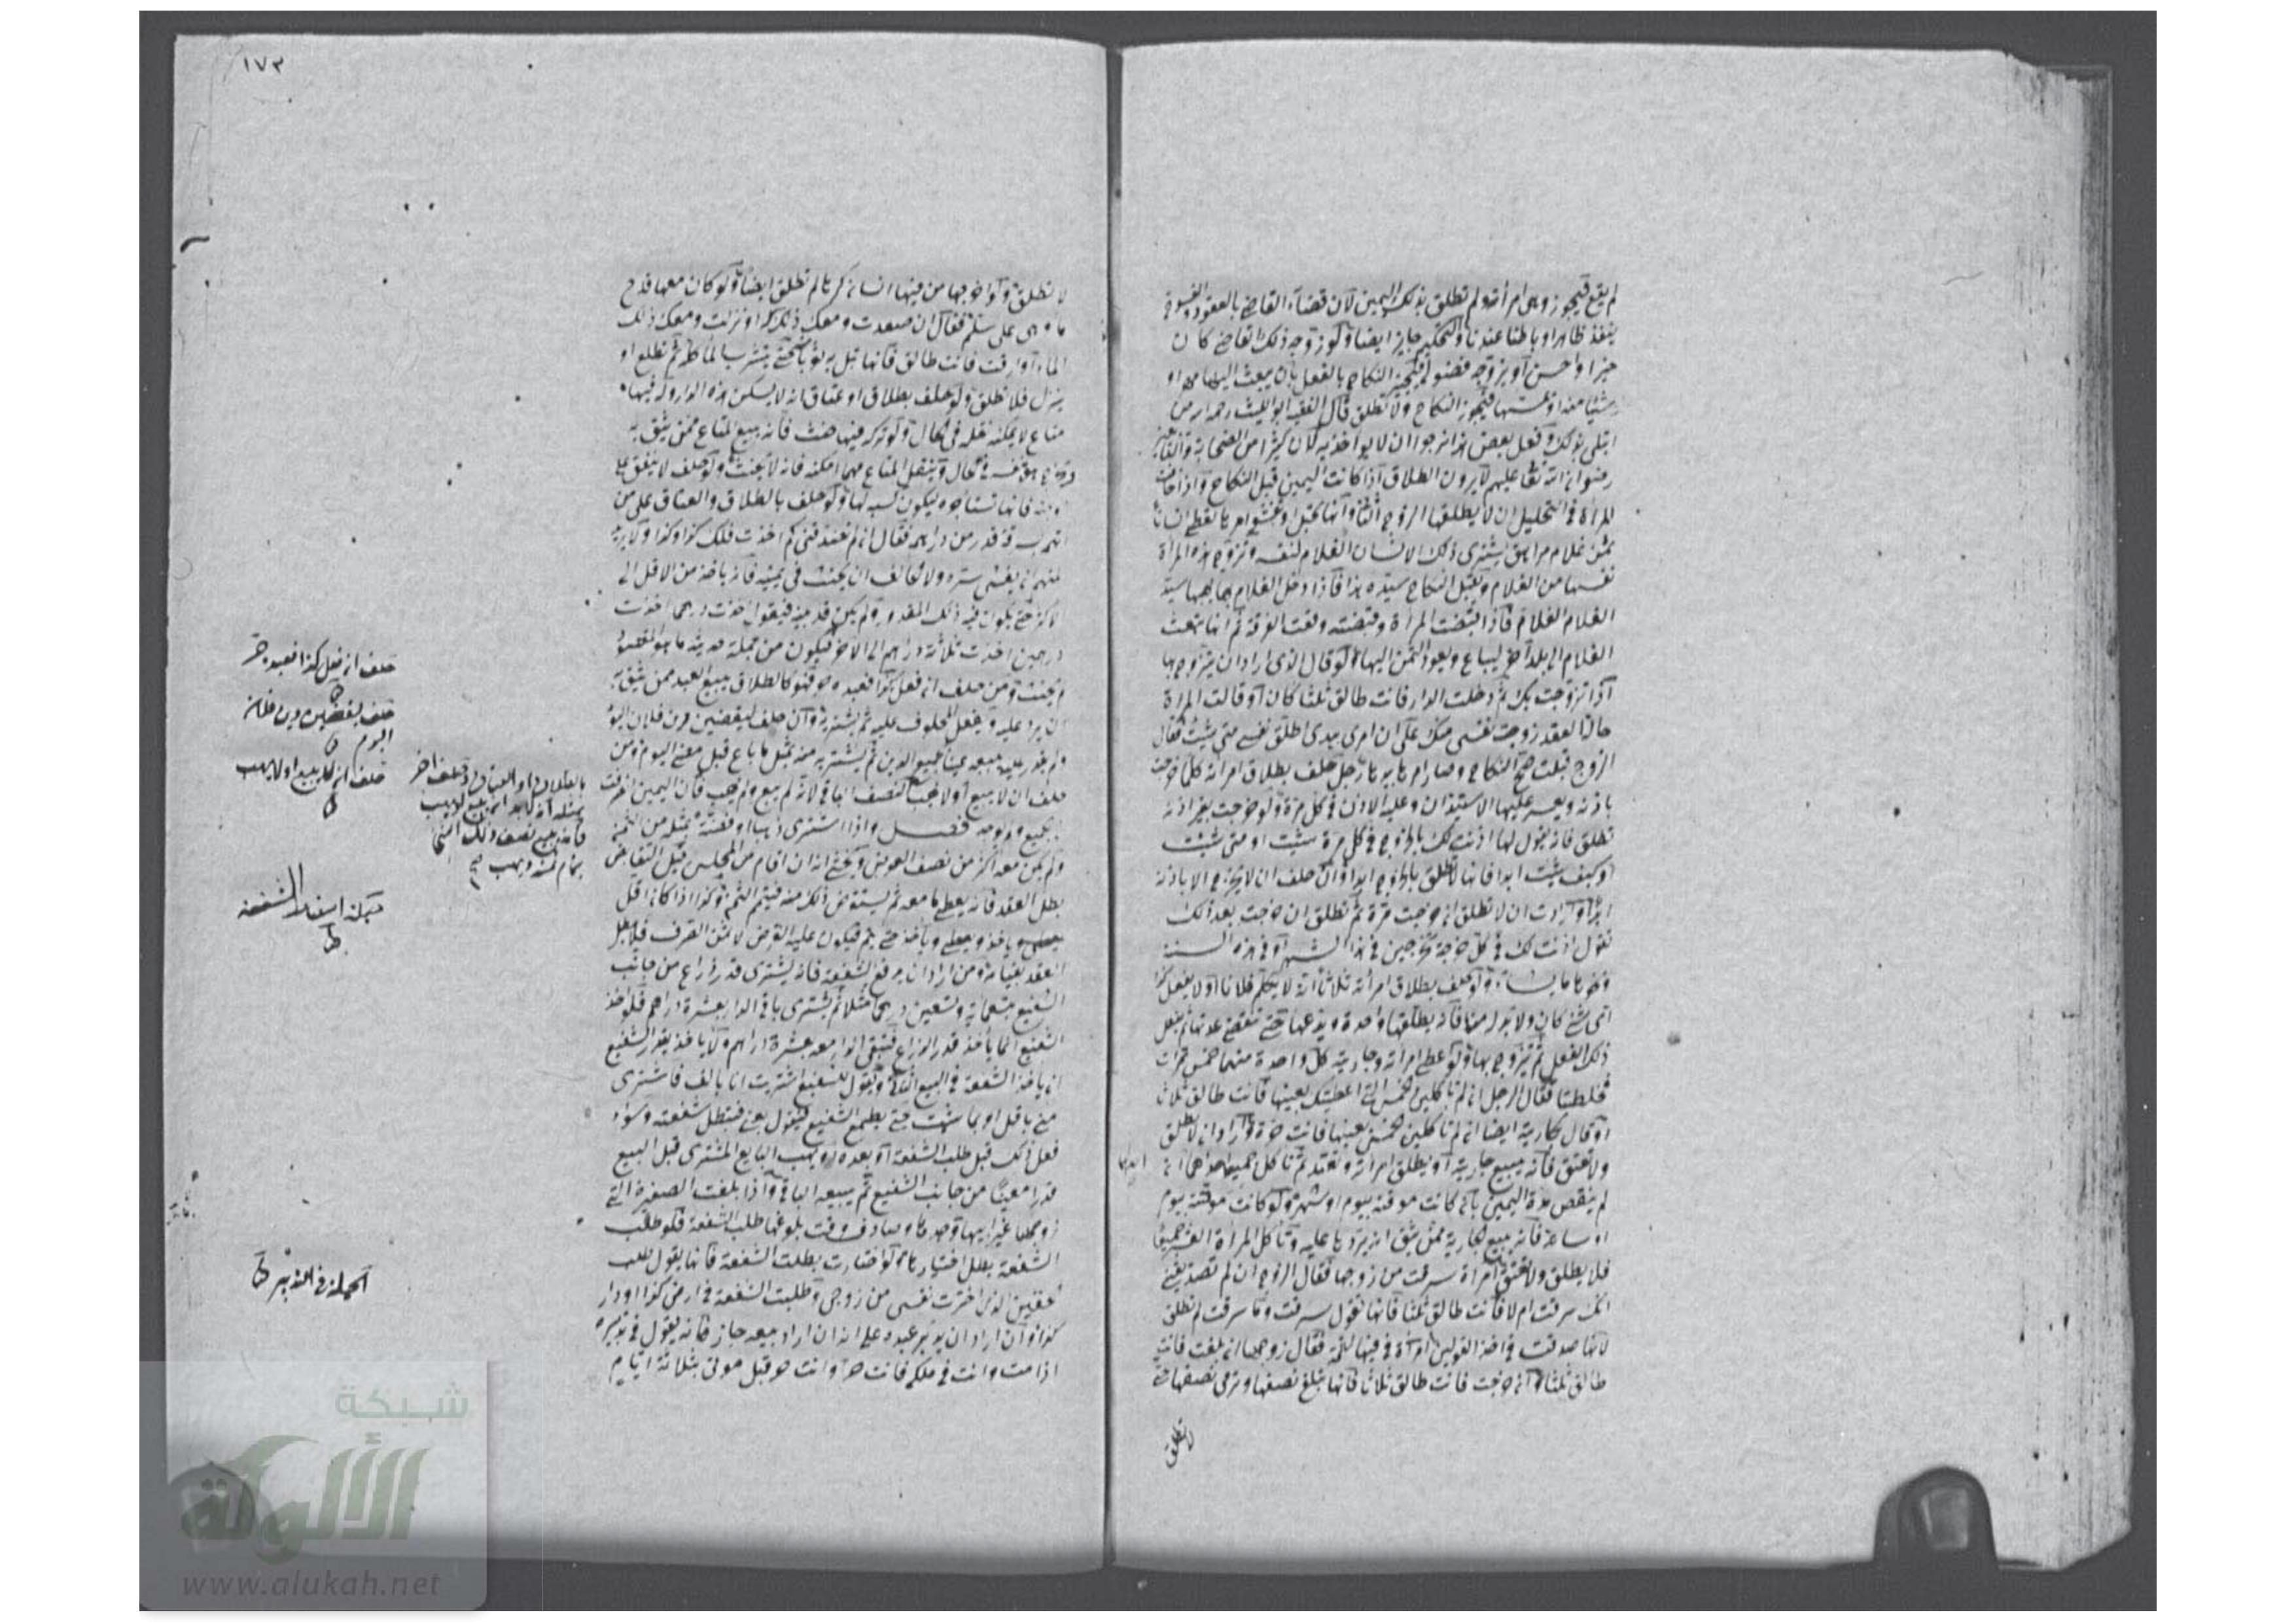 لم يقع فيجوز وهي امرأته ولم تطلق بذلك اليمين لأن قضاء القاضي بالعقود والفسوخ
ينفذ ظاهرا وباطنا عندنا والتحكيم جايز ايضا ولو زوجه ذلك القاضي كان
خيرا واحسن او يزوجه فضولي فيجيز النكاح بالفعل بان يبعث اليها مهرا او
شيئا منه او يمسها فيجوز النكاح ولا تطلق قال الفقيه ابو الليث رحمه الله من
ابتلى بذلك وفعل بعض هذا نرجو ان لا يؤاخذ به لان كثيرا من الصحابة والتابعين
رضوان الله تعا عليهم لا يرون الطلاق اذا كانت اليمين قبل النكاح واذا خافت
المرأة في التحليل ان لا يطلقها الزوج الثاني
ثمن غلام مراهق يشتري ذلك الانسان الغلام لنفسه وتزوج هذه المرأة
نفسها من الغلام ويقبل النكاح سيده هذا فاذا دخل الغلام بها يهبها سيد
الغلام الغلام فاذا قبضت المرأة وقبضته وقعت الفرقة ثم انها تبعث
الغلام الى بلد آخر ليباع ويعود الثمن اليها ولو قال الذي اراد ان يتزوجها
اذا تزوجت بك ثم دخلت الدار فانت طالق ثلثا كان او قالت المرأة
حال العقد زوجت نفسي منك على ان امري بيدي اطلق نفسي متى شئت فقال
الزوج قبلت صح النكاح وصار امرها بيدها رجل حلف بطلاق امرأته كلما خرجت
باذنه ويعسر عليها الاستيذان وعليه الاذن في كل مرة ولو خرجت بغير اذنه
تطلق فانه يقول لها اذنت لك بالخروج في كل مرة شئت او متى شئت
او كيف شئت ابدا فانها لا تطلق بالخروج ابدا وان حلف ان لا تخرج الا باذنه
ابدا وارادت ان لا تطلق ان خرجت مرة ثم تطلق ان خرجت بعد ذلك
تقول اذنت لك في كل خرجة تخرجين في هذا الشهر او في هذه السنة
ونحو ما يشاء ولو حلف بطلاق امرأته ثلاثا انه لا يكلم فلانا او لا يفعل كذا
اي شيء كان ولا بد له منه فانه يطلقها واحدة ويدعها حتى تنقضي عدتها ثم يفعل
ذلك الفعل ثم يتزوج بها ولو اعطى امرأته وجاريته كل واحدة منهما خمس تمرات
فخلطتا فقال الرجل ان لم تأكلي الخمس التي اعطيتك بعينها فانت طالق ثلاث
او قال للجارية ايضا ان لم تأكلين الخمس بعينها فانت حرة واراد ان لا تطلق
ولا تعتق فانه يبيع جاريته او يطلق امرأته وتعتد ثم تأكل جميعها احداهما ان
لم ينقص مدة اليمين بان كانت موقتة بيوم او شهر ولو كانت موقتة بيوم
او ساعة فانه يبيع الجارية ممن يثق انه يردها عليه وتأكل المرأة العشر جميعا
فلا يطلق ولا تعتق امرأة سرقت من زوجها فقال الزوج ان لم تصدقيني
انك سرقت ام لا فانت طالق ثلثا فانها تقول سرقت وما سرقت لم تطلق
لانها صدقت في احد القولين امرأة في فيها لقمة فقال زوجها ان بلعت فانت
طالق ثلثا وان خرجت فانت طالق ثلاثا فانها تبلع نصفها وترمي نصفها حتى
لا تطلق
١٧٣
لا تطلق ولو اخرجها من فيها انسان كرها لم تطلق ايضا ولو كان معها قدح
ماء وهي على سلم فقال ان صعدت ومعك ذلك او نزلت ومعك ذلك
الماء او ارقت فانت طالق فانها تبل به ثوبا حتى يتشرب الماء كله ثم تطلع او
ينزل فلا تطلق ولو حلف بطلاق او عتاق انه لا يسكن هذه الدار وله فيها
متاع لا يمكنه نقله في الحال ولو تركه فيها حنث فانه يبيع المتاع ممن يثق به
في الحال وينقل المتاع مهما امكنه فانه لا يحنث ولو حلف لا ينفق على
فانها تستأجره ليكون كسبه لها ولو حلف بالطلاق والعتاق على من
اتهم بسرقة قدر من دراهم فقال ان لم تصدقني كم اخذت فلك كذا وكذا ولا يريد
ان يفشي سره ولا يخالف ان يحنث في يمينه فانه ياخذ من الاقل الى
الاكثر حتى يكون فيه ذلك المقدور ولم يكن قد بينه فيقول اخذت درهما اخذت
درهمين اخذت ثلاثة دراهم الى الاخر فيكون من جملة حديثه ما هو المقصود
ولا يحنث ومن حلف ان فعل كذا فعبده حر فهو كالطلاق يبيع العبد ممن يثق به
ان يرد عليه ويفعل المحلوف عليه ثم يشتريه وان حلف ليقضين دين فلان اليوم
ولم يقدر عليه يبيعه عينا بجميع الدين ثم يشتريه منه بمثل ما باع قبل مضي اليوم ومن
حلف ان لا يبيع او لا يهب النصف الباقي لانه لم يبع ولم يهب فان اليمين انصرفت
بجميع فصل واذا اشترى ذهبا او فضة بمثله من الثمن
ولم يكن معه اكثر من نصف العوض ويخشى انه ان اقام من المجلس قبل التقابض
بطل العقد فانه يعطي ما معه ثم يستقرض ذلك منه فيتم الثمن وكذا اذا كان اقل
يعطي وياخذ ويعطي وياخذ حتى يتم فيكون عليه القرض لا ثمن الصرف فلا يبطل
العقد بقيامه ومن اراد ان يدفع الشفعة فانه يشتري قدر ذراع من جانب
الشفيع بتسعمائة وتسعين درهما مثلا ثم يشتري باقي الدار بعشرة دراهم فلو اخذ
الشفيع انما يأخذ قدر الذراع فتبقى الدار معه بعشرة دراهم ولا يأخذ بقدر الشفيع
ان ياخذ الشفعة في البيع الثاني ويقول للشفيع اشتريت انا بالف فاشتري
مني باقل او بما شئت حتى يطمع الشفيع فيقول بعني فتبطل شفعته وسواء
فعل ذلك قبل طلب الشفعة او بعده او يهب البايع المشتري قبل البيع
قدرا معينا من جانب الشفيع ثم يبيعه الباقي واذا بلغت الصغيرة التي
زوجها غير ابيها وجدها وصادف وقت بلوغها طلب الشفعة فلو طلبت
الشفعة بطل اختيارها ولو اختارت بطلت الشفعة فانها تقول طلبت
الحقين الذين اخترت نفسي من زوجي وطلبت الشفعة في ارض كذا او دار
كذا وان اراد ان يدبر عبده على انه ان اراد بيعه جاز فانه يقول في تدبيره
اذا مت وانت في ملكي فانت حر او انت حر قبل موتي بثلاثة ايام
حلف ان فعل كذا فعبده حر
حلف ليقضين دين فلان
اليوم
حلف ان لا يبيع او لا يهب
حيلة اسقاط الشفعة
الحيلة في التدبير
شبكة
الألوكة
www.alukah.net